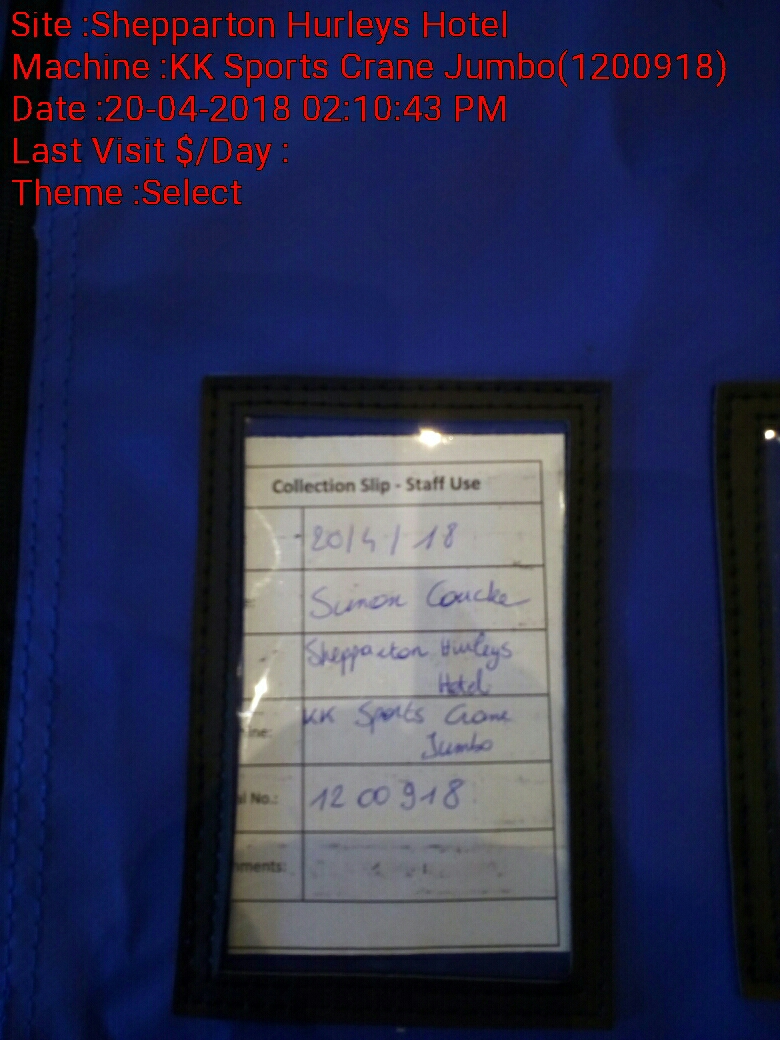 Site :Shepparton Hurleys Hotel
Machine :KK Sports Crane Jumbo(1200918)
Date :20-04-2018 02:10:43 PM
Last Visit $/Day :
Theme :Select
Collection Slip - Staff Use
20/4/18
Simon Coucke
Shepparton Hurleys
Hotel
KK Sports Crane
Jumbo
1200918